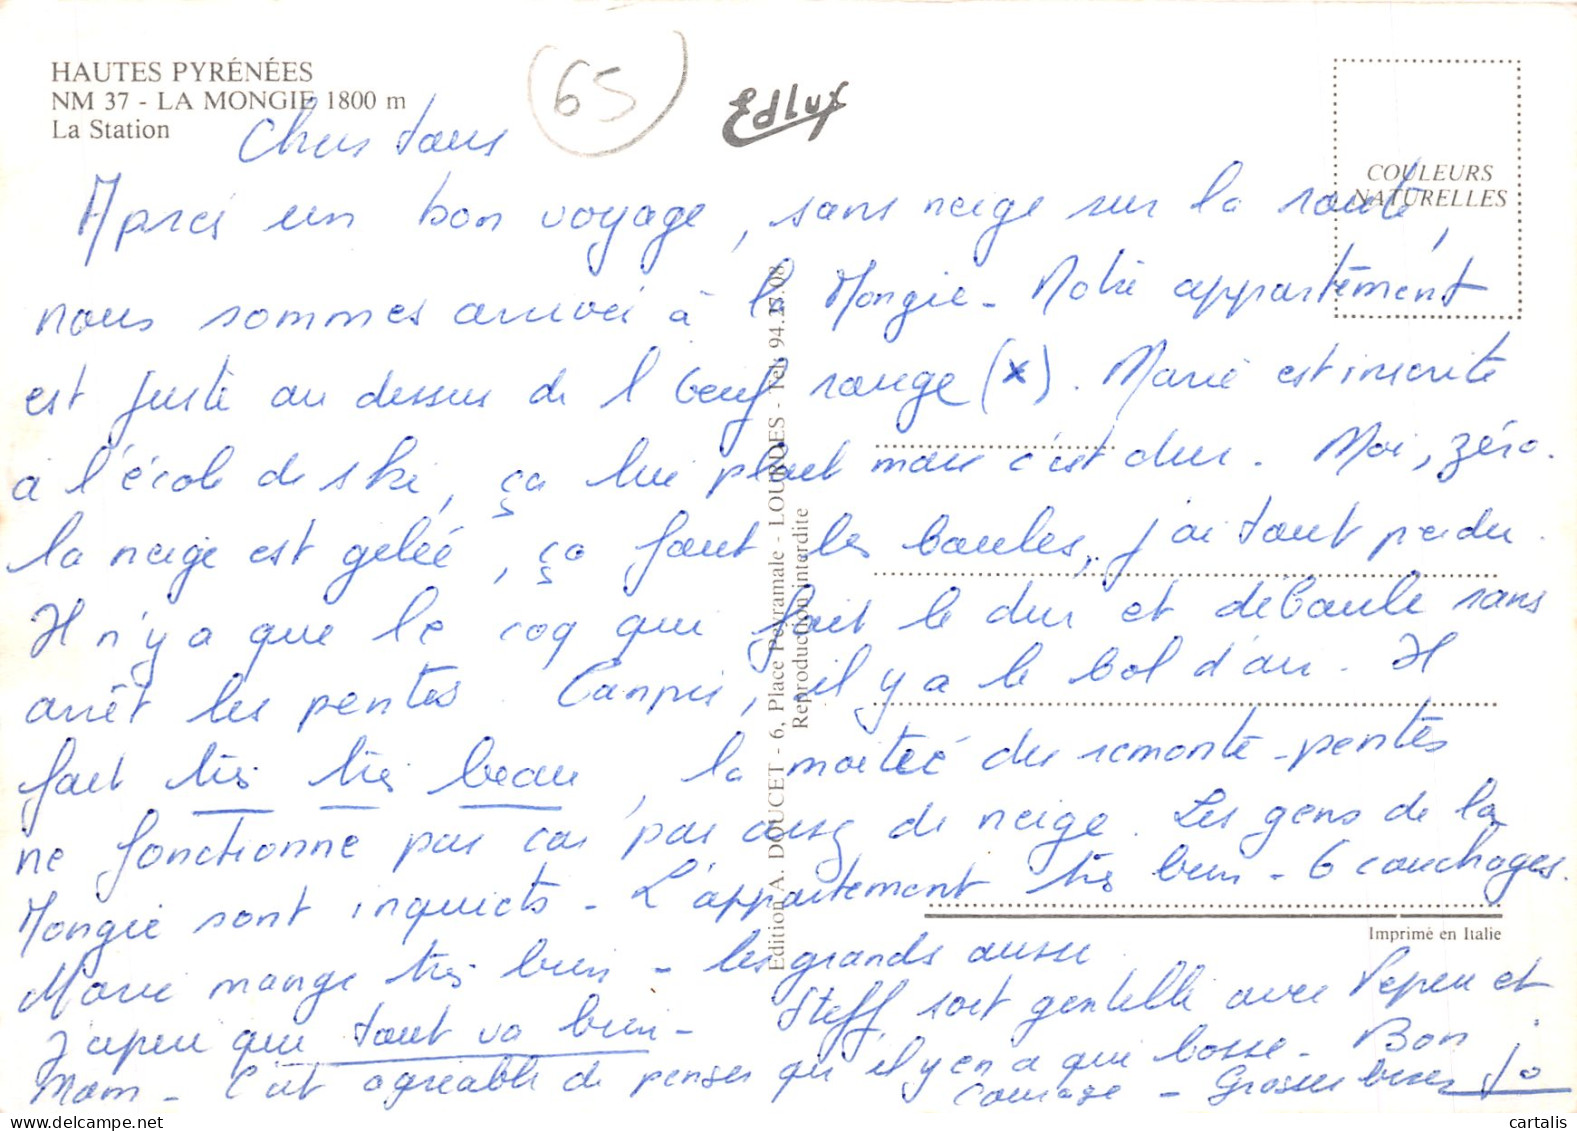 HAUTES PYRÉNÉES
NM 37 - LA MONGIE 1800 m
La Station
65
Edlux
COULEURS
NATURELLES
Chers tous
Après un bon voyage, sans neige sur la route,
nous sommes arrivés à la Mongie - Notre appartement
est juste au dessus de l'oeuf rouge (x). Marie est inscrite
à l'école de ski, ça lui plait mais c'est dur. Moi, zéro.
la neige est gelée, ça fout les boules, j'ai tout perdu.
Il n'y a que le coq qui fait le dur et déboule sans
arrêt les pentes. Canpis, il y a le bol d'air. Il
fait très très beau, la moitié du remonte-pentes
ne fonctionne pas car pas assez de neige. Les gens de la
Mongie sont inquiets - L'appartement très bien - 6 couchages.
Marie mange très bien - les grands aussi
Steff, soit gentille avec Pepeu et
Mam - J'apeu que tout va bien -
C'est agréable de penser qu'il y en a qui bosse - Bon
courage - Grosses bises Jo
Edition A. DOUCET - 6, Place Peyramale - LOURDES - Tél. 94.27.08
Reproduction interdite
Imprimé en Italie
cartalis
delcampe.net